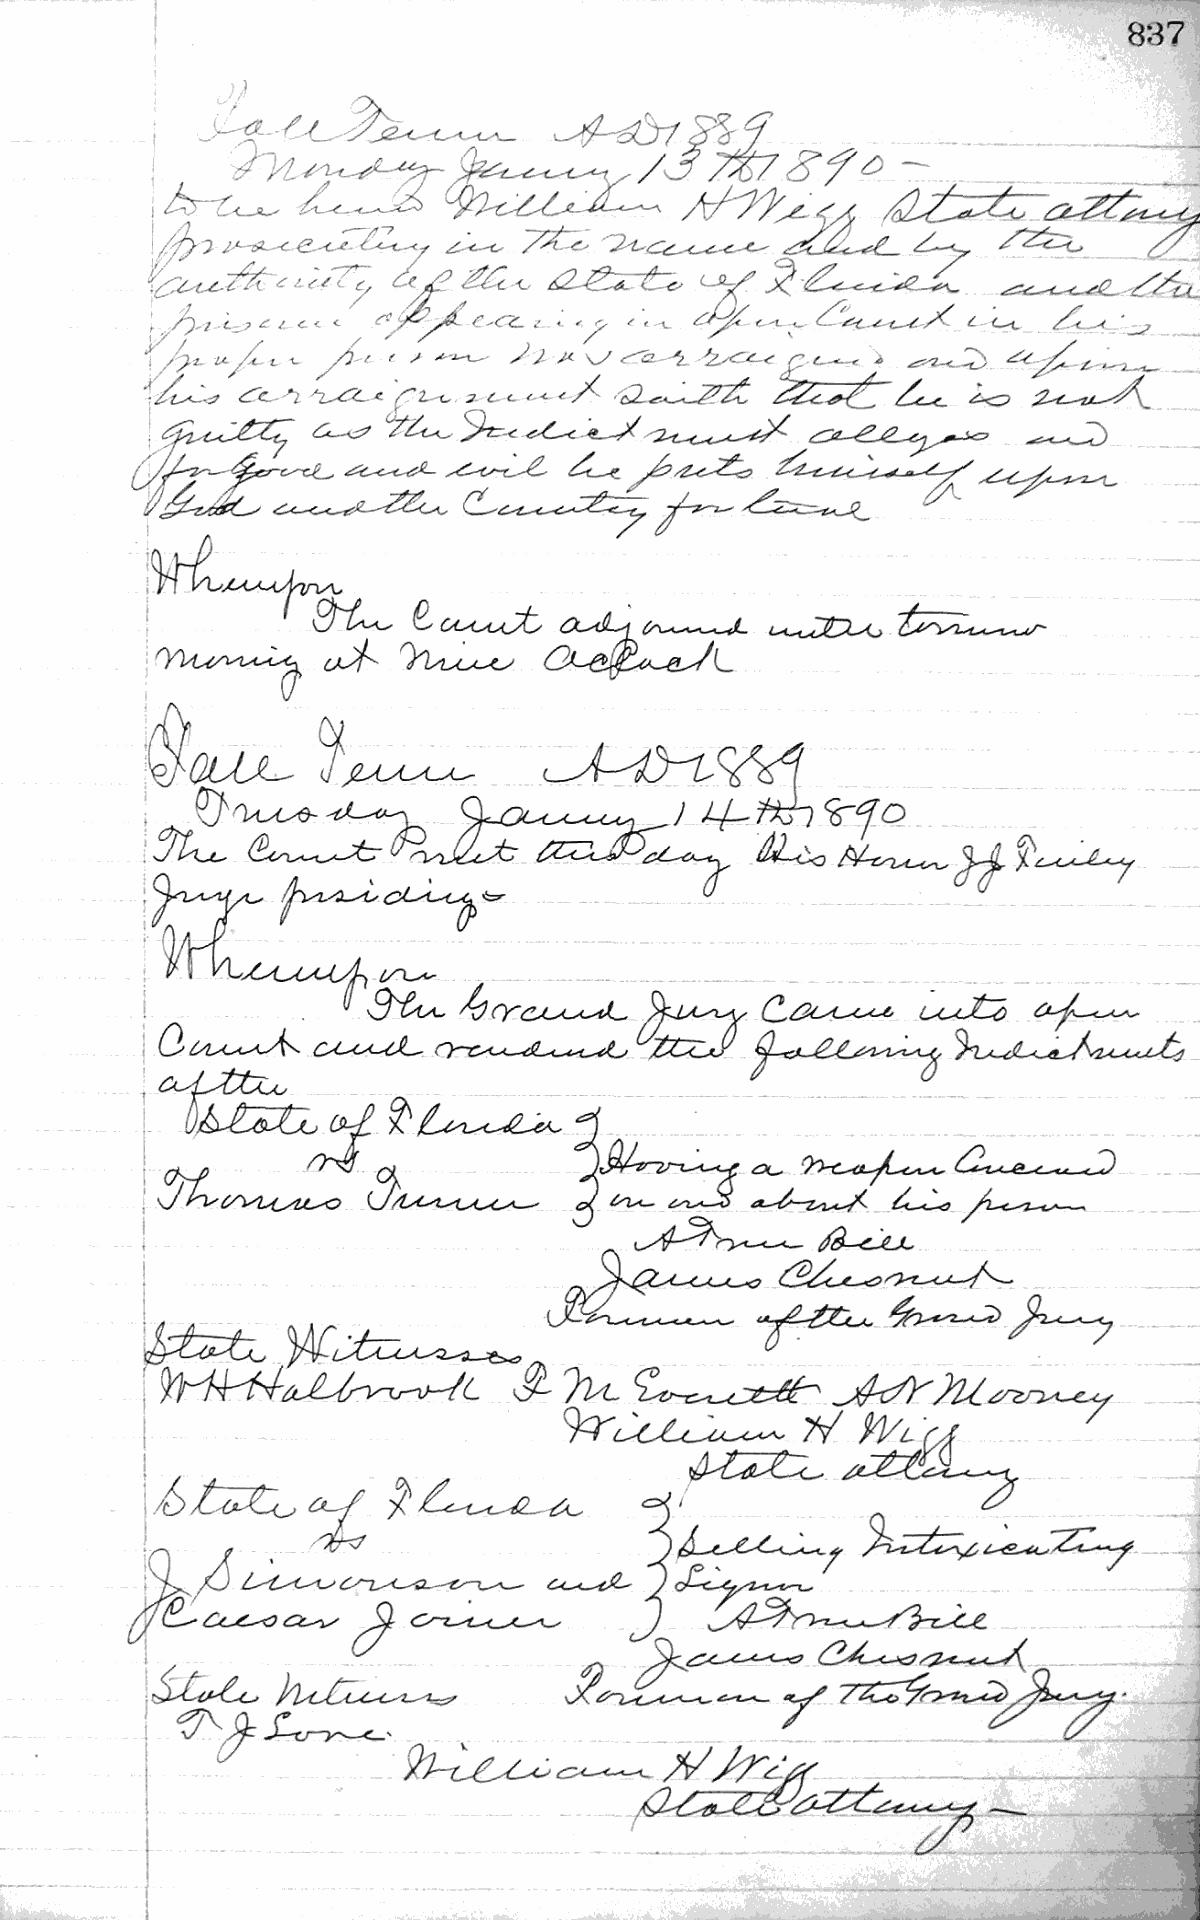 837
Fall Term AD 1889
Monday Janury 13th 1890 -
to be heard William H Wigg State attorny
prosecuting in the name and by the
authority of the State of Florida and the
prisoner appearing in open Court in his
proper person was arraigned and upon
his arraignment saith that he is not
guilty as the Indictment alleges and
for good and evil he puts himself upon
God and the Country for
Whereupon
The Court adjourned until tomorrow
morning at nine Oclock
Fall Term AD 1889
Tuesday Janury 14th 1890
The Court met this day His Honor J J Finley
Juge presiding -
Whereupon
The Grand Jury Came into open
Court and rendered the following Indictments
of the
State of Florida
vs
Having a weapon Concealed
Thomas Turner on and about his person
A True Bill
James Chesnut
Forman of the Grand Jury
State Witnesses
W H Halbrook F M Everett A N Mooney
William H Wigg
State attorny
State of Florida
vs
Selling Intoxicating
J Simonson and Liquor
Caesar Joiner A True Bill
James Chesnut
State Witness Foreman of The Grand Jury.
T J Lone.
William H Wigg
State attorny -